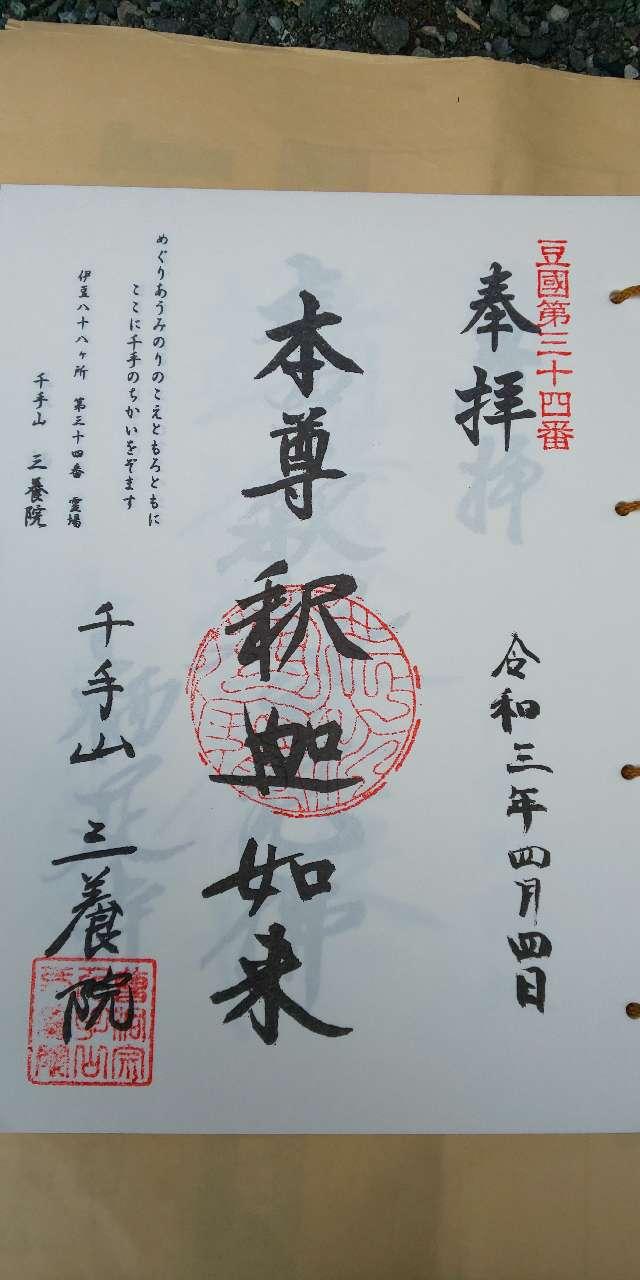 豆國第三十四番
奉拝
令和三年四月四日
本尊釈迦如来
めぐりあうみのりのこえともろともに
ここに千手のちかいをぞます
伊豆八十八ヶ所 第三十四番 霊場
千手山 三養院
千手山 三養院